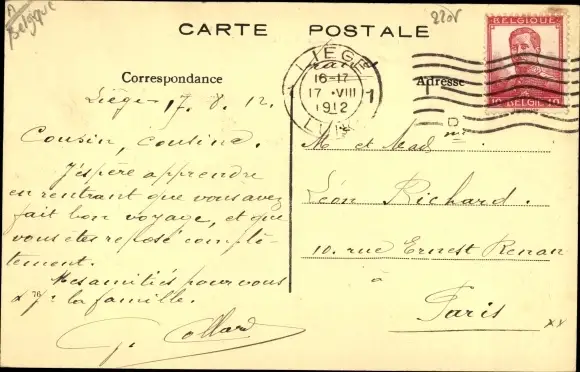 A
Belgique
220f
CARTE POSTALE
BELGIQUE
10 BELGIË 10
LIÉGE
16-17
17 · VIII
1912
LUIK
1
1
Correspondance
Adresse
Liège 17. 8. 12.
Cousin, cousine.
J'espère apprendre
en rentrant que vous avez
fait bon voyage, et que
vous êtes reposé complè-
tement.
Mes amitiés pour vous
la famille.
76
G. Collard
M et Mad
Léon Richard.
10. rue Ernest Renan
à
Paris
xx